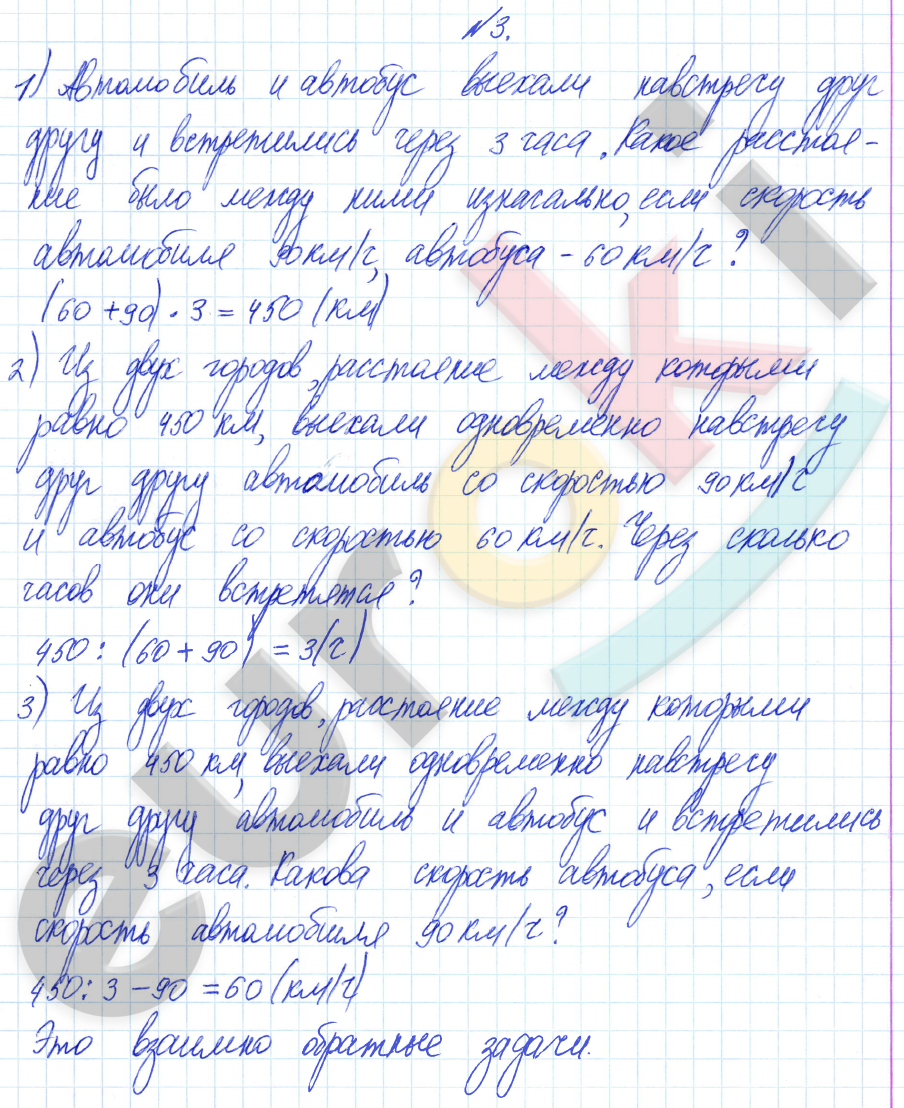 №3.
1) Автомобиль и автобус выехали навстречу друг
другу и встретились через 3 часа. Какое расстоя-
ние было между ними изначально, если скорость
автомобиля 90 км/ч, автобуса - 60 км/ч?
(60 + 90) · 3 = 450 (км)
2) Из двух городов, расстояние между которыми
равно 450 км, выехали одновременно навстречу
друг другу автомобиль со скоростью 90 км/ч
и автобус со скоростью 60 км/ч. Через сколько
часов они встретятся?
450 : (60 + 90) = 3(ч)
3) Из двух городов, расстояние между которыми
равно 450 км, выехали одновременно навстречу
друг другу автомобиль и автобус и встретились
через 3 часа. Какова скорость автобуса, если
скорость автомобиля 90 км/ч?
450 : 3 - 90 = 60 (км/ч)
Это взаимно обратные задачи.
euroki